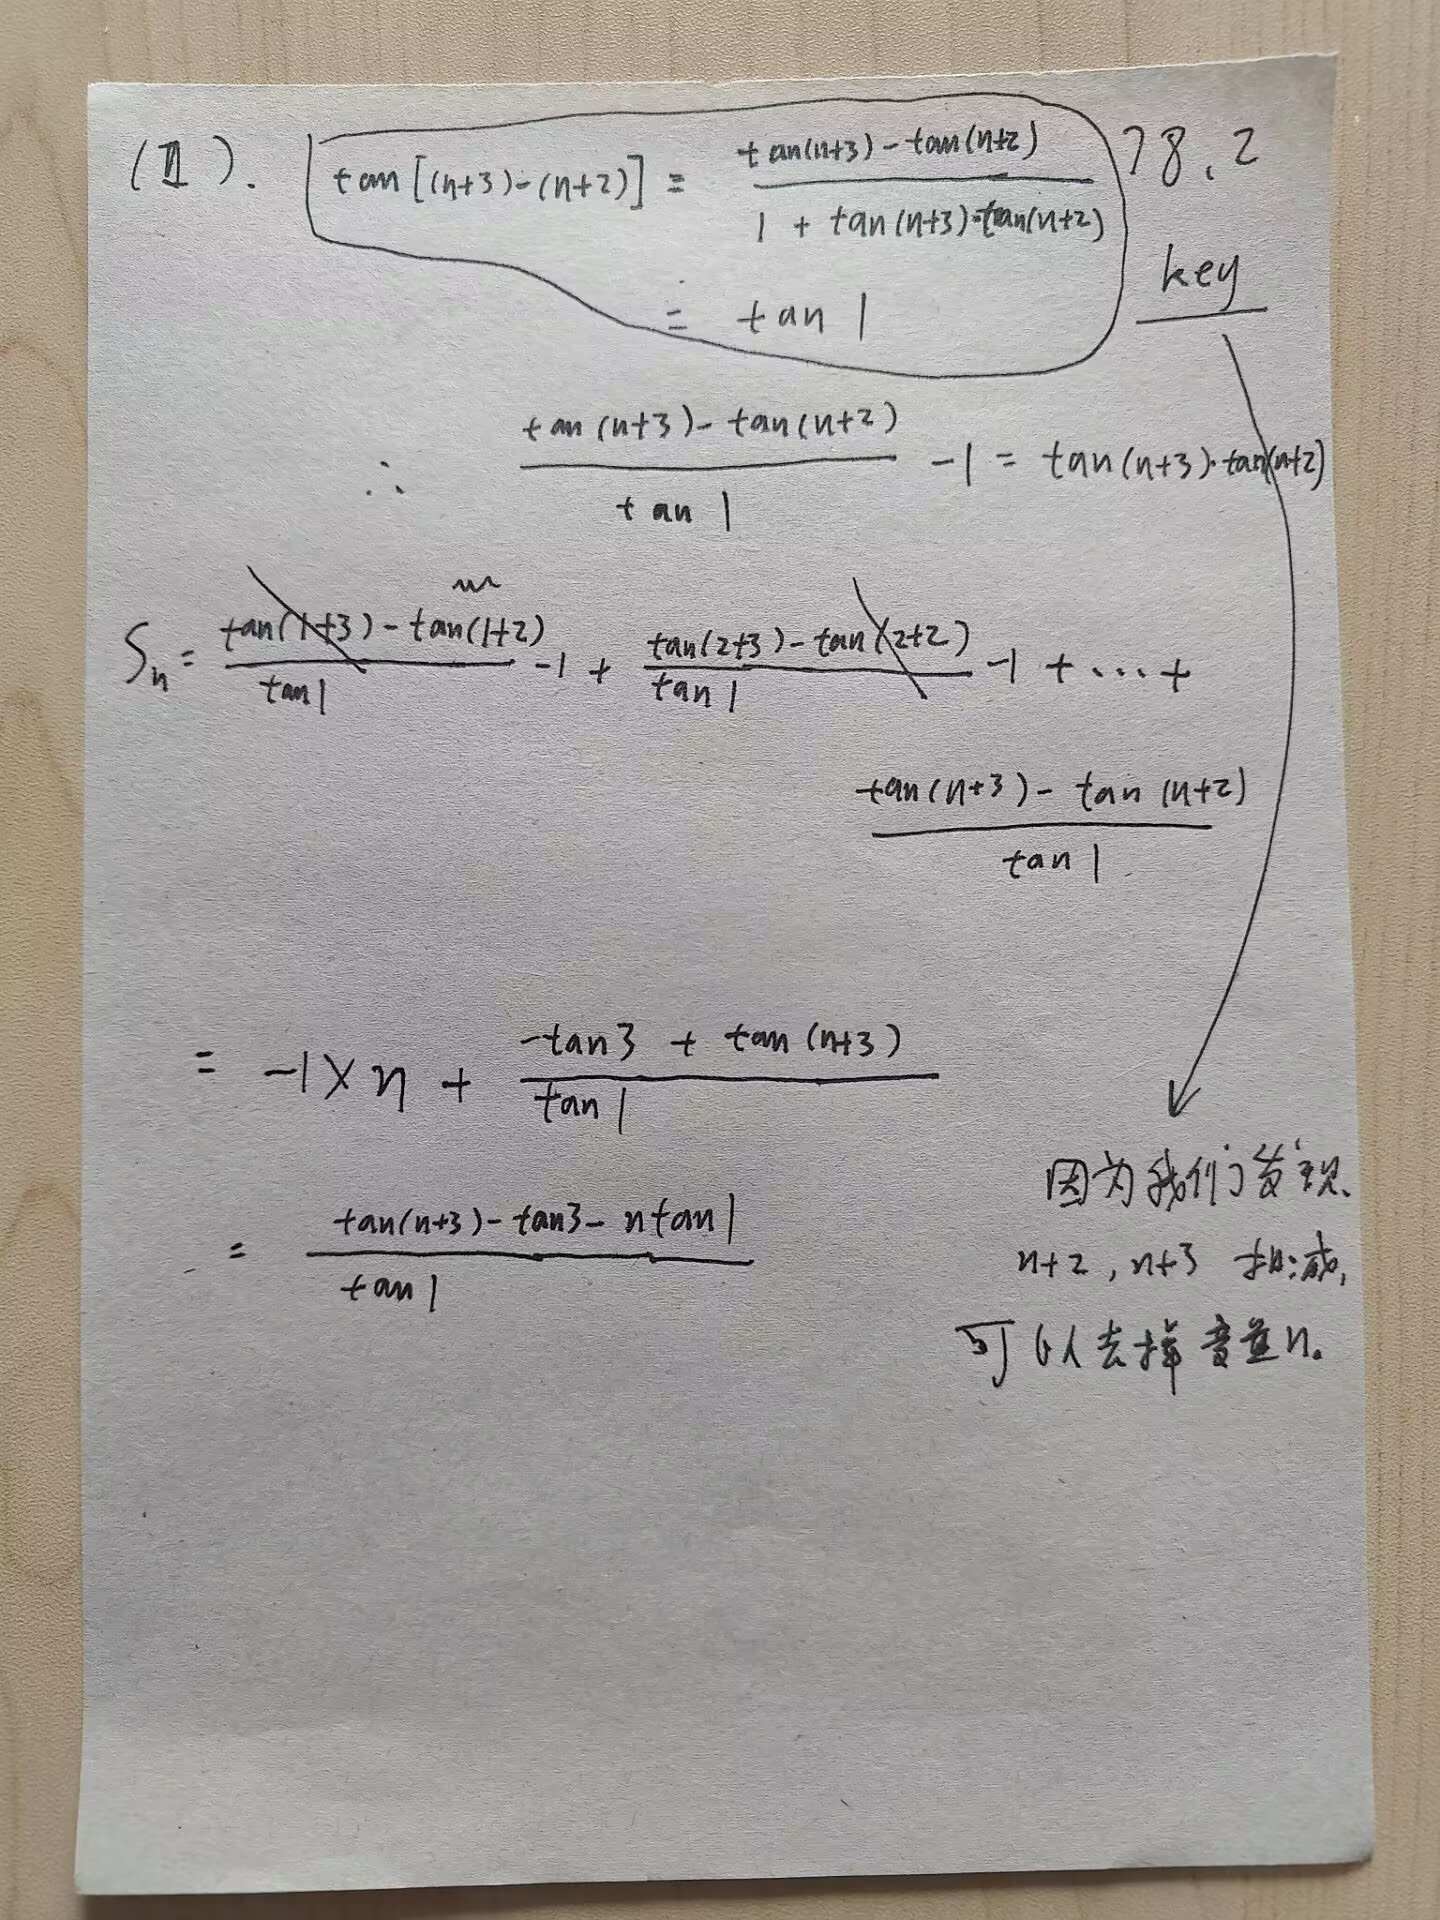 (II). tan[(n+3)-(n+2)] = \frac{tan(n+3)-tan(n+2)}{1+tan(n+3)·tan(n+2)} 78.2
= tan 1
key
∴ \frac{tan(n+3)-tan(n+2)}{tan 1} -1 = tan(n+3)·tan(n+2)
Sn = \frac{tan(1+3)-tan(1+2)}{tan 1} -1 + \frac{tan(2+3)-tan(2+2)}{tan 1} -1 + ... +
\frac{tan(n+3)-tan(n+2)}{tan 1}
= -1×n + \frac{-tan3+tan(n+3)}{tan 1}
= \frac{tan(n+3)-tan3-ntan1}{tan 1}
因为我们发现、
n+2,n+3 相减,
可以去掉变量n。